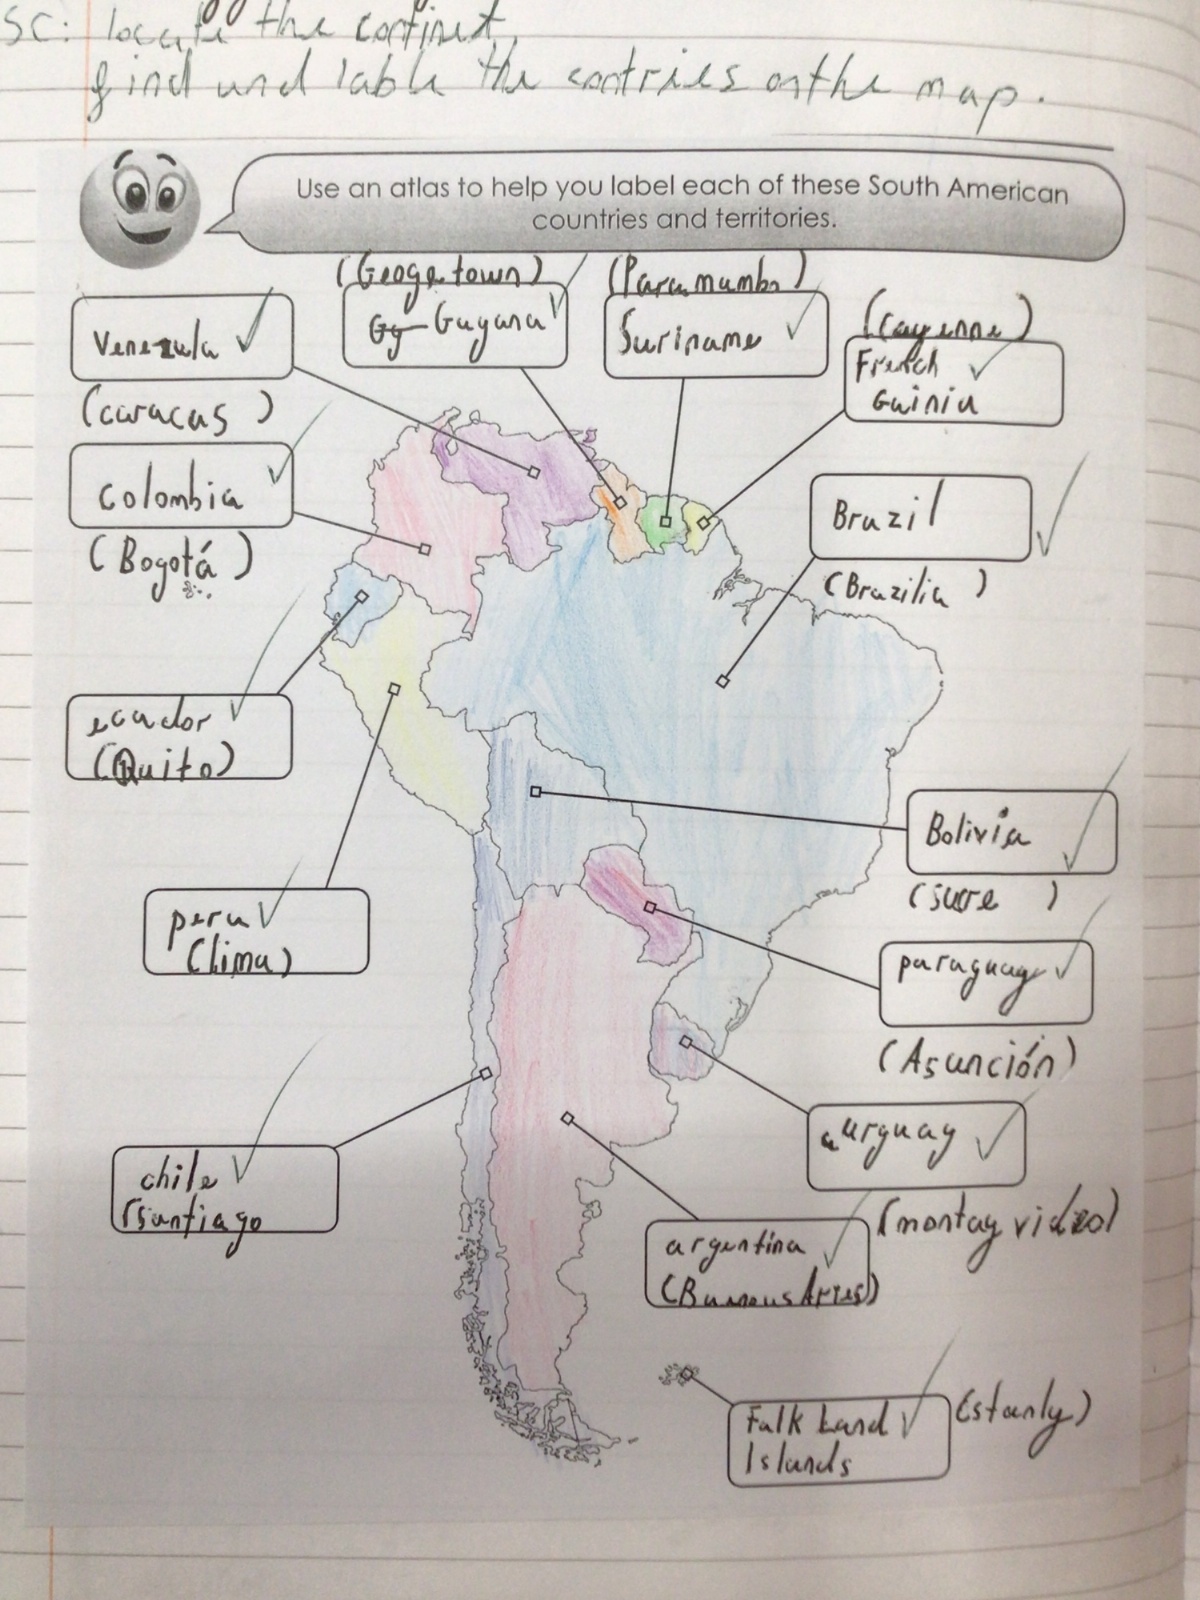 SC: locate the continet,
find and lable the contries on the map.
Use an atlas to help you label each of these South American
countries and territories.
(Geogetown)
Gy Guyana
(Paramumbo)
Suriname
(Cayenne)
French
Guinia
Venezula
(caracas)
Colombia
(Bogotá)
Brazil
(Brazilia)
ecuador
(Quito)
Bolivia
(sucre)
peru
(lima)
paraguay
(Asunción)
urguay
(montay video)
chile
(santiago
argentina
(Buenous Aries)
Falk Land
Islands
(stanly)